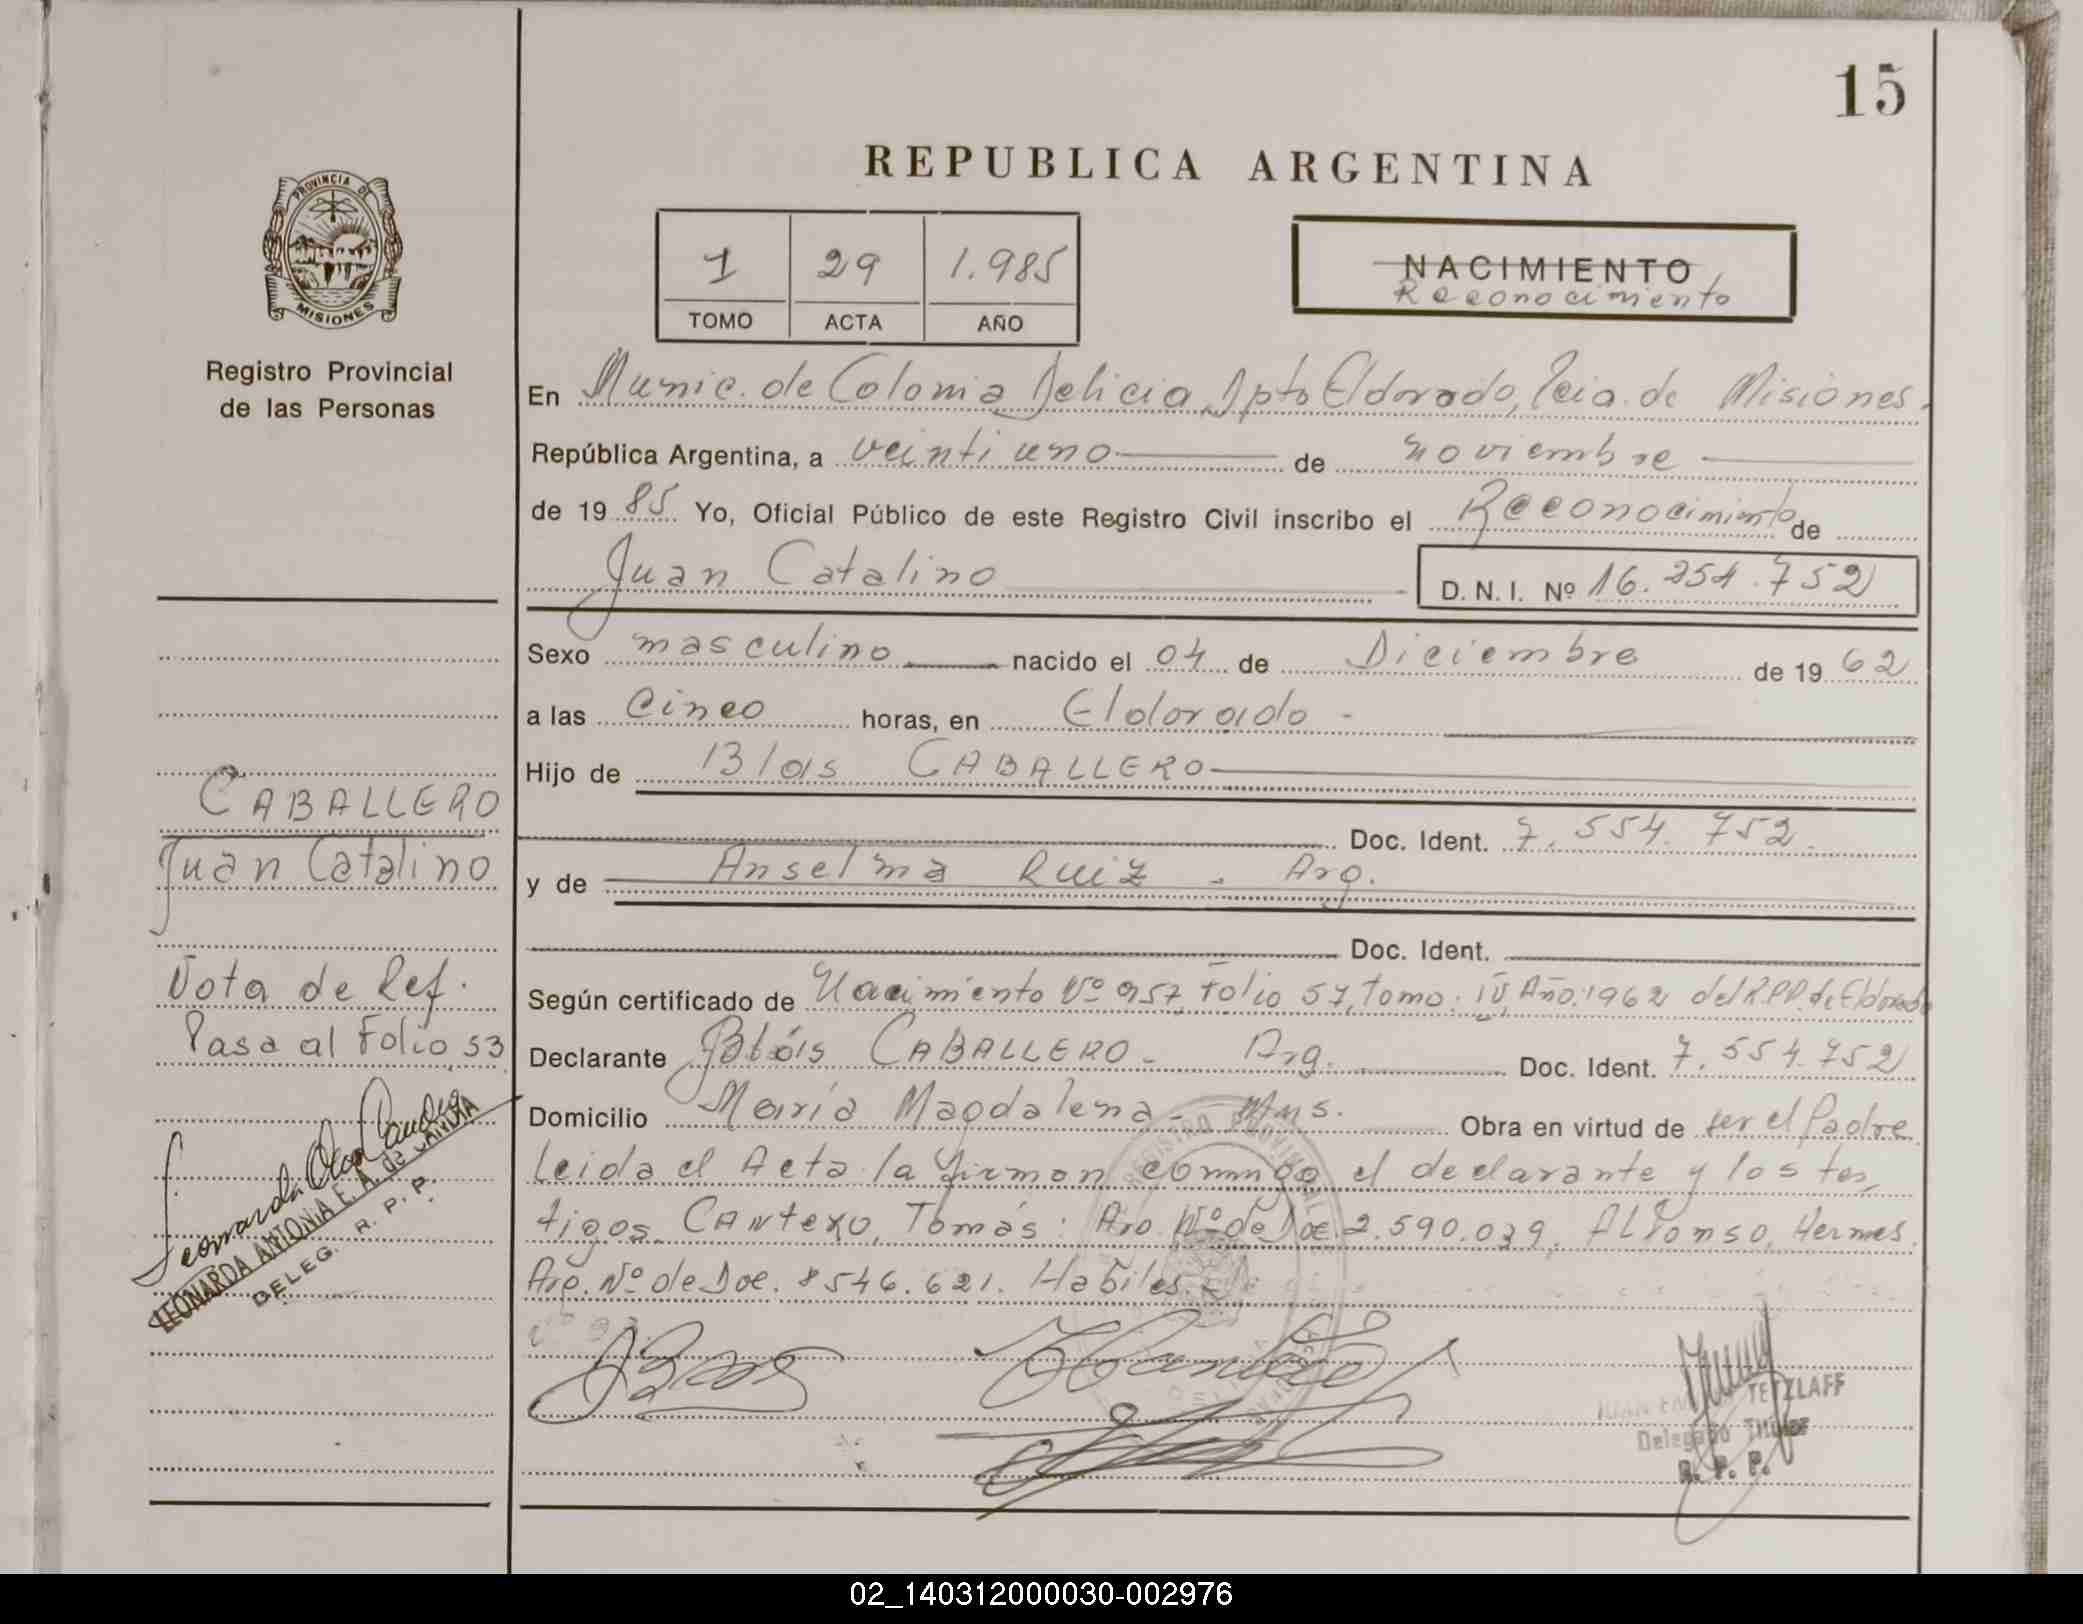 15
REPUBLICA ARGENTINA
PROVINCIA DE
MISIONES
Registro Provincial
de las Personas
1 29 1.985
TOMO ACTA AÑO
NACIMIENTO
Reconocimiento
En Munic. de Colonia Delicia, Dpto Eldorado, Pcia. de Misiones.
República Argentina, a veintiuno de noviembre
de 1985. Yo, Oficial Público de este Registro Civil inscribo el Reconocimiento de
Juan Catalino D. N. I. Nº 16.254.752
Sexo masculino nacido el 04 de Diciembre de 1962
a las Cinco horas, en Eldorado -
Hijo de Blas CABALLERO
Doc. Ident. 7.554.752.
y de Anselma Ruiz - Arg.
Doc. Ident.
Según certificado de Nacimiento Nº 957, Folio 57, Tomo: IV, Año: 1962 del R.P.P. de Eldorado
Declarante Blás CABALLERO - Arg. Doc. Ident. 7.554.752
Domicilio María Magdalena - Mns. Obra en virtud de ser el Padre
Leida el Acta la firman conmigo el declarante y los tes,
tigos. CANTERO, Tomás: Arg. Nº de Doc. 2.590.039, ALFONSO, Hermes.
Arg. Nº de Doc. 8546.621. Habiles.
CABALLERO
Juan Catalino
Nota de Ref.
Pasa al Folio 53
LEONARDA ANTONIA E. A. de
DELEG. R. P. P.
REGISTRO PROVINCIAL
TETZLAFF
Delegado
R. P. P.
02_140312000030-002976